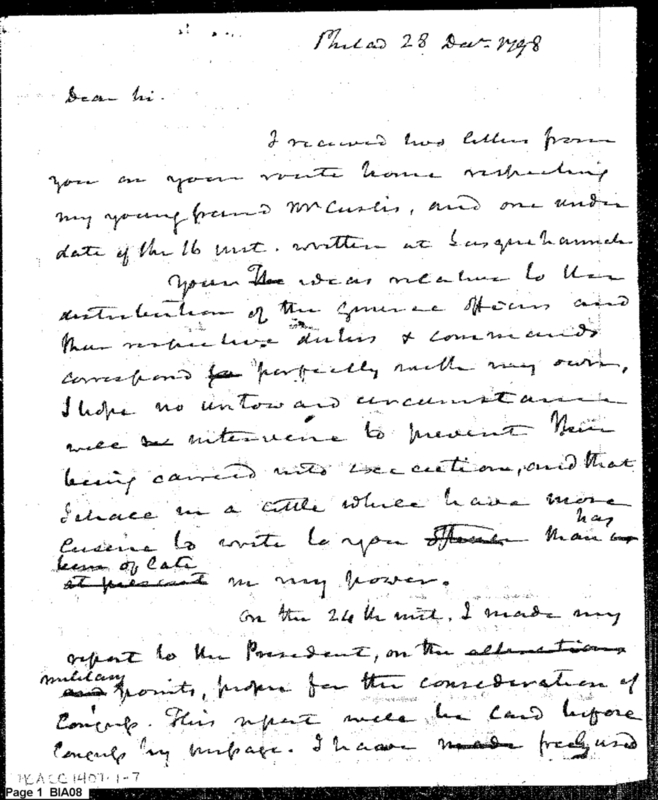 Philad 28 Decr. 1798
Dear Sir.
I received two letters from
you on your route home respecting
my young friend Mr Custis, and one under
date of the 16 inst. written at Susquehannah
Your The ideas relative to the
distribution of the general officers and
their respective duties & commands
correspond so perfectly with my own,
I hope no untoward circumstance
will intervene to prevent their
being carried into execution, and that
I shall in a little while have more
leisure to write to you often than has
been of late
at present in my power.
On the 24th inst. I made my
report to the President, on the alterations
military
and points, proper for the consideration of
Congress. This report will be laid before
Congress by message. I have made freely used
MCACC1407.1-7
Page 1 BIA08